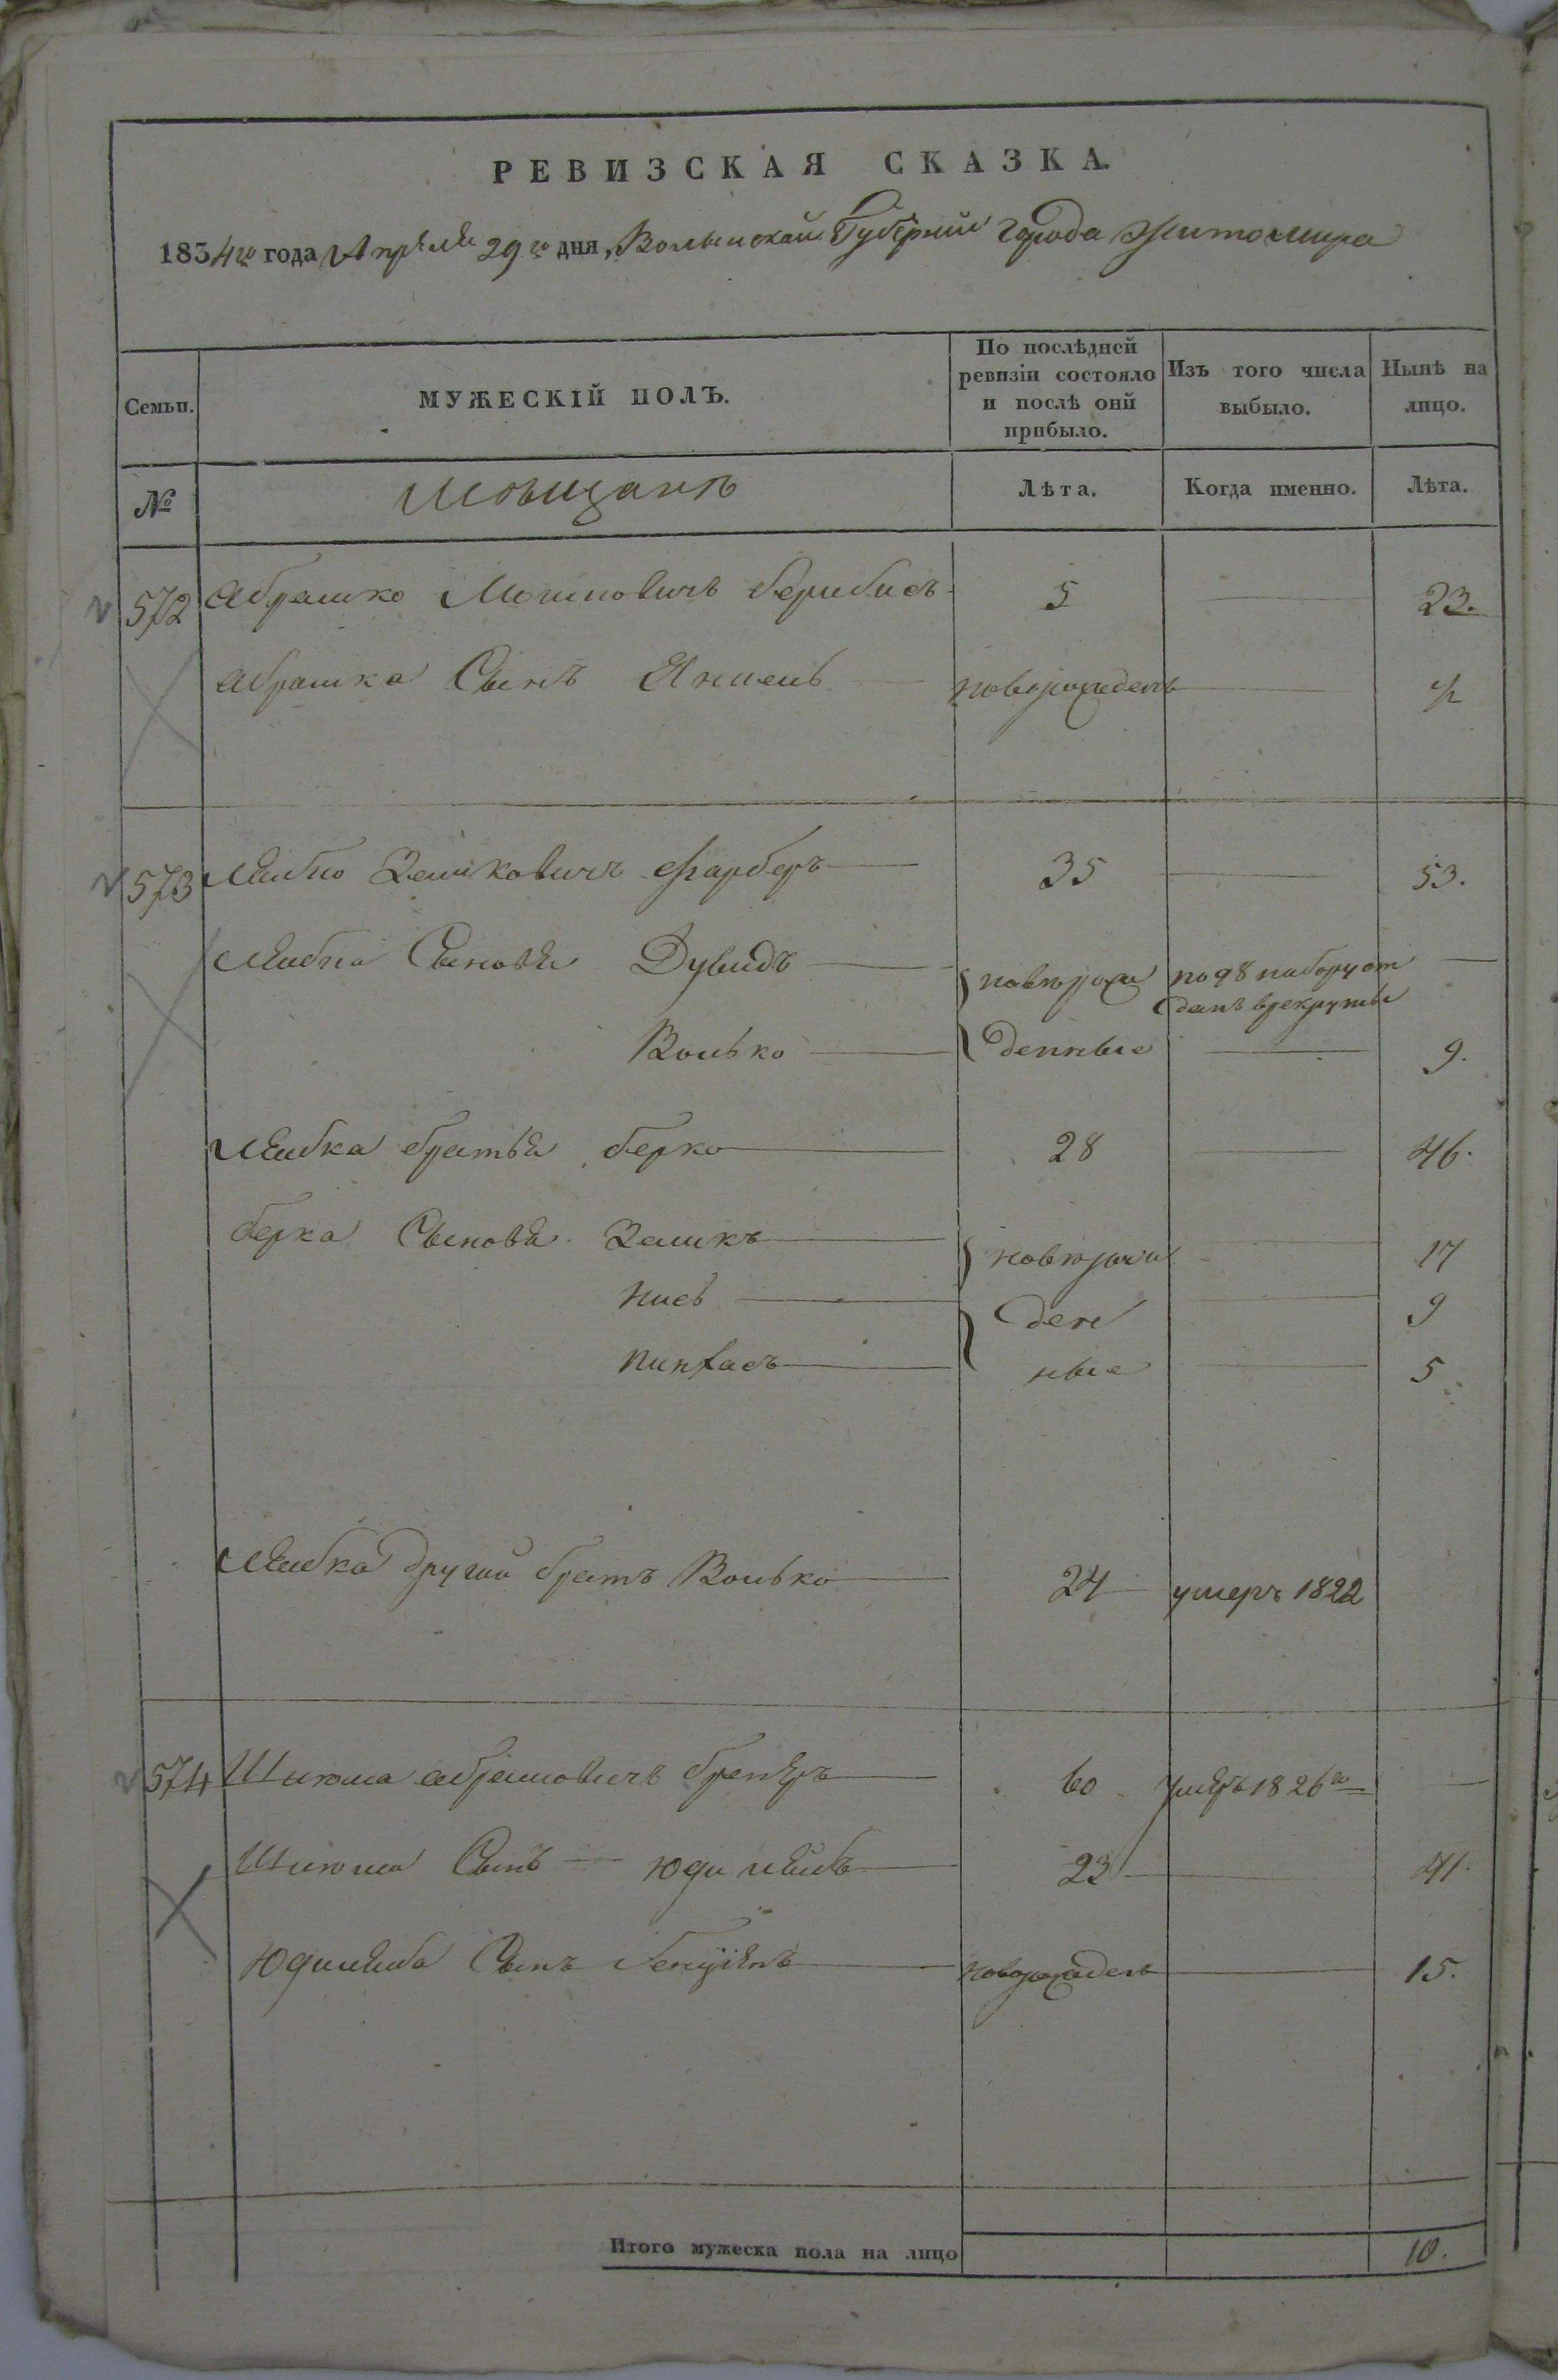 РЕВИЗСКАЯ СКАЗКА.
1834го года Апреля 29го дня, Волынской Губерний города Житомира
Семьи. МУЖЕСКІЙ ПОЛЪ. По послѣдней ревизіи состояло и послѣ онй прибыло. Изъ того числа выбыло. Нынѣ на лицо.
№ Мѣщанъ Лѣта. Когда именно. Лѣта.
572 Абрамко Мошковичъ 5 23.
Абрамка Сынъ Аншель новорожденъ
573 Лейбко Зеликовичъ Фарберъ 35 53.
Лейбка Сыновья Дувидъ новорож по 98 набору от
данъ врекруты
Волько денные 9.
Лейбка братья Берко 28 46.
Берка Сыновья Зеликъ новорож 17
Нисъ ден 9
Пинхасъ ные 5
Лейбка другой братъ Волько 24 умеръ 1822
574 Шлюма Абрамовичъ 60 умеръ 1826го
Шлюма Сынъ Юдилейбъ 23 41.
Юдилейба Сынъ новорожден 15.
Итого мужеска пола на лицо 10.